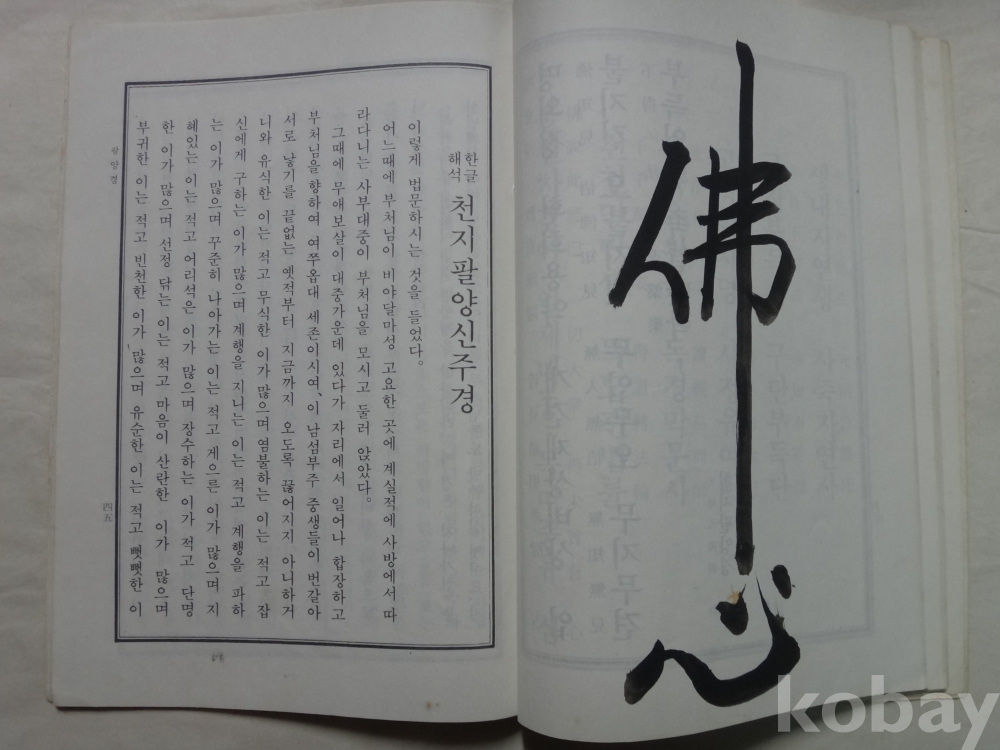 佛心
한글
해석
천지팔양신주경
이렇게 법문하시는 것을 들었다。
어느때에 부처님이 비야달마성 고요한 곳에 계실적에 사방에서 따
라다니는 사부대중이 부처님을 모시고 둘러 앉았다。
그때에 무애보살이 대중가운데 있다가 자리에서 일어나 합장하고
부처님을 향하여 여쭈옵대 세존이시여、이 남섬부주 중생들이 번갈아
서로 낳기를 끝없는 옛적부터 지금까지 오도록 끊어지지 아니하거
니와 유식한 이는 적고 무식한 이가 많으며 염불하는 이는 적고 잡
신에게 구하는 이가 많으며 계행을 지니는 이는 적고 계행을 파하
는 이가 많으며 꾸준히 나아가는 이는 적고 게으른 이가 많으며 지
혜있는 이는 적고 어리석은 이가 많으며 장수하는 이가 적고 단명
한 이가 많으며 선정 닦는 이는 적고 마음이 산란한 이가 많으며
부귀한 이는 적고 빈천한 이가 많으며 유순한 이는 적고 뻣뻣한 이
팔양경
四五
kobay